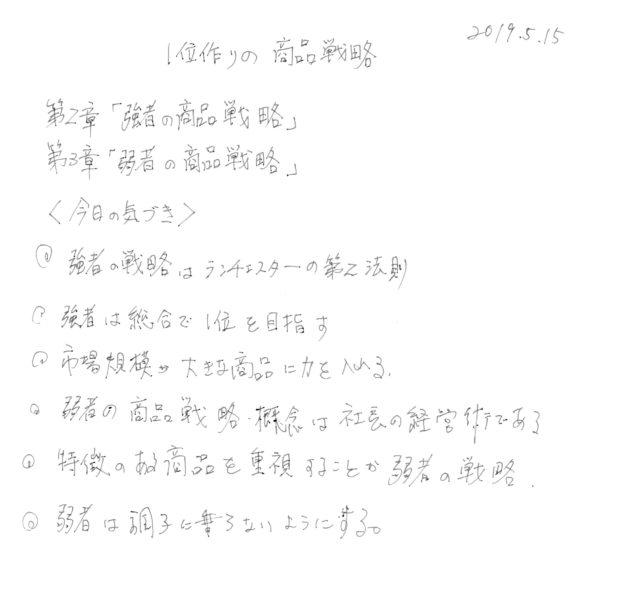 2019.5.15
1位作りの 商品戦略
第2章「強者の商品戦略」
第3章「弱者の商品戦略」
〈今日の気づき〉
◎ 強者の戦略はランチェスターの第2法則
○ 強者は総合で1位を目指す
◎ 市場規模の大きな商品に力を入れる.
○ 弱者の商品戦略・概念は社長の経営術である
◎ 特徴のある商品を重視することが弱者の戦略.
◎ 弱者は調子に乗らないようにする。